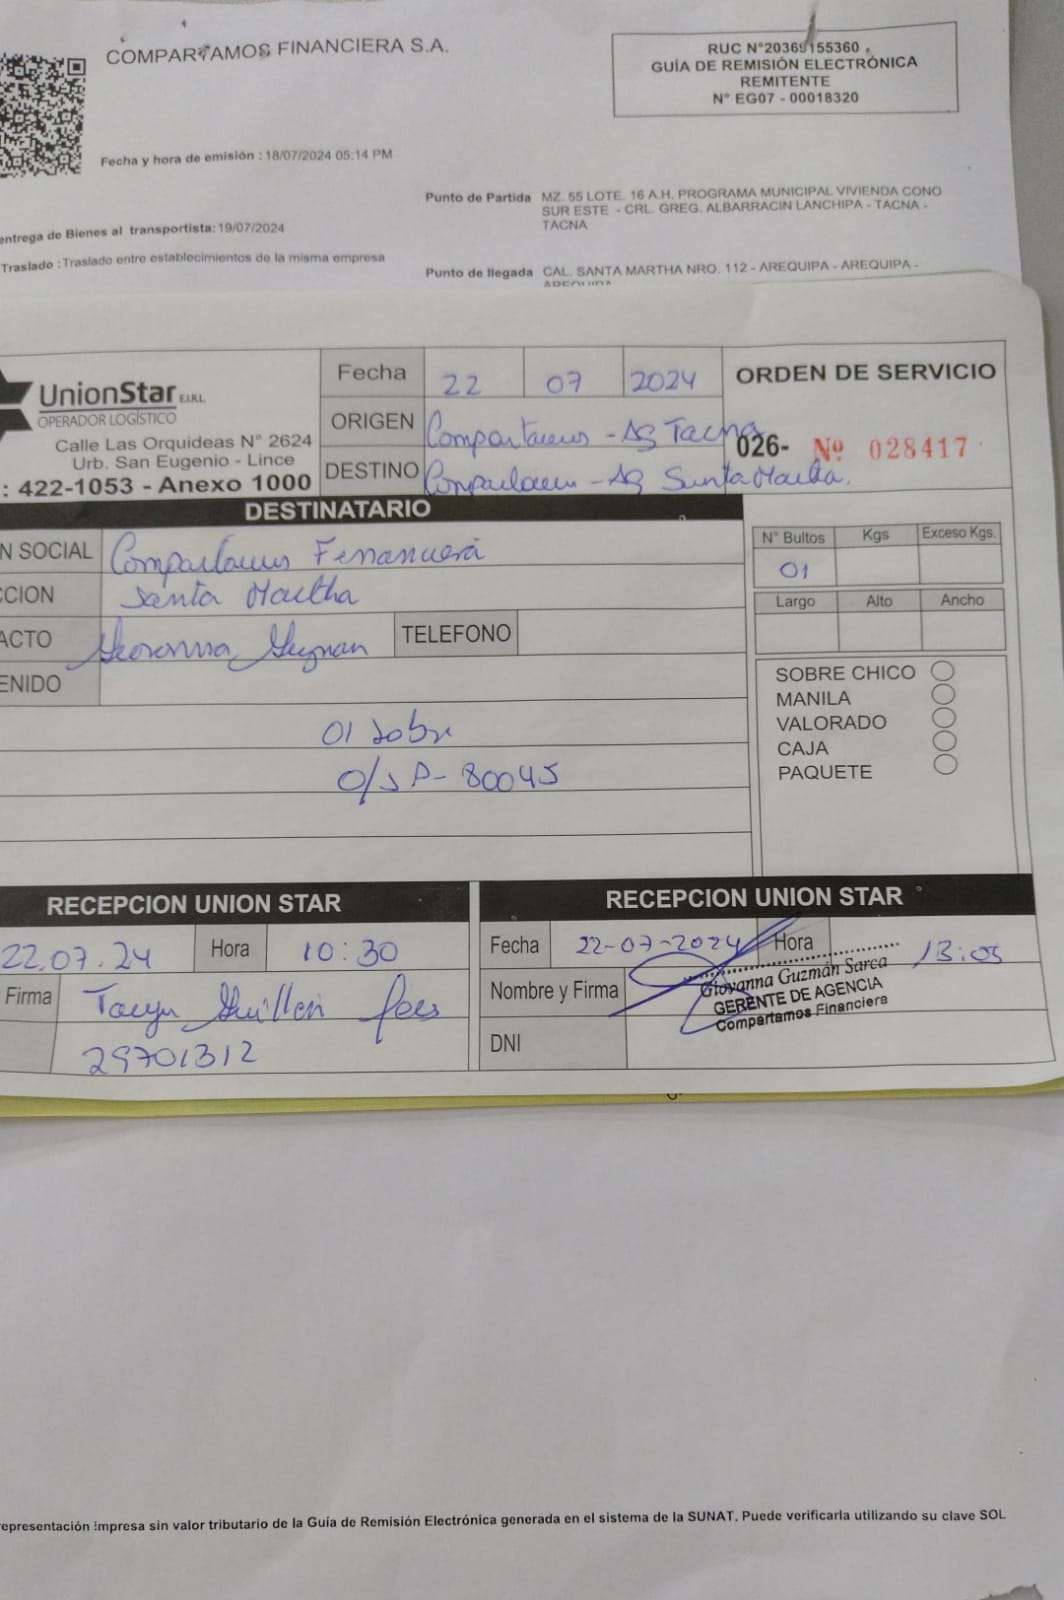 COMPARTAMOS FINANCIERA S.A.
RUC N°20369155360
GUÍA DE REMISIÓN ELECTRÓNICA
REMITENTE
N° EG07 - 00018320
Fecha y hora de emisión : 18/07/2024 05:14 PM
Punto de Partida MZ. 55 LOTE. 16 A.H. PROGRAMA MUNICIPAL VIVIENDA CONO
SUR ESTE - CRL. GREG. ALBARRACIN LANCHIPA - TACNA -
TACNA
entrega de Bienes al transportista: 19/07/2024
Traslado : Traslado entre establecimientos de la misma empresa
Punto de llegada CAL. SANTA MARTHA NRO. 112 - AREQUIPA - AREQUIPA -
AREQUIPA
UnionStar E.I.R.L.
OPERADOR LOGÍSTICO
Calle Las Orquideas N° 2624
Urb. San Eugenio - Lince
: 422-1053 - Anexo 1000
Fecha 22 07 2024
ORIGEN Compartamos - Ag Tacna
DESTINO Compartamos - Ag Santa Martha.
ORDEN DE SERVICIO
026- Nº 028417
DESTINATARIO
N SOCIAL Compartamos Financiera
CCION Santa Martha
ACTO Geovanna Guzman TELEFONO
ENIDO
01 sobre
O/S P- 80045
N° Bultos Kgs Exceso Kgs.
01
Largo Alto Ancho
SOBRE CHICO
MANILA
VALORADO
CAJA
PAQUETE
RECEPCION UNION STAR
22.07.24 Hora 10:30
Firma Guillen
29701312
RECEPCION UNION STAR
Fecha 22-07-2024 Hora 13:05
Nombre y Firma
Giovanna Guzmán Sarca
GERENTE DE AGENCIA
Compartamos Financiera
DNI
epresentación impresa sin valor tributario de la Guía de Remisión Electrónica generada en el sistema de la SUNAT. Puede verificarla utilizando su clave SOL